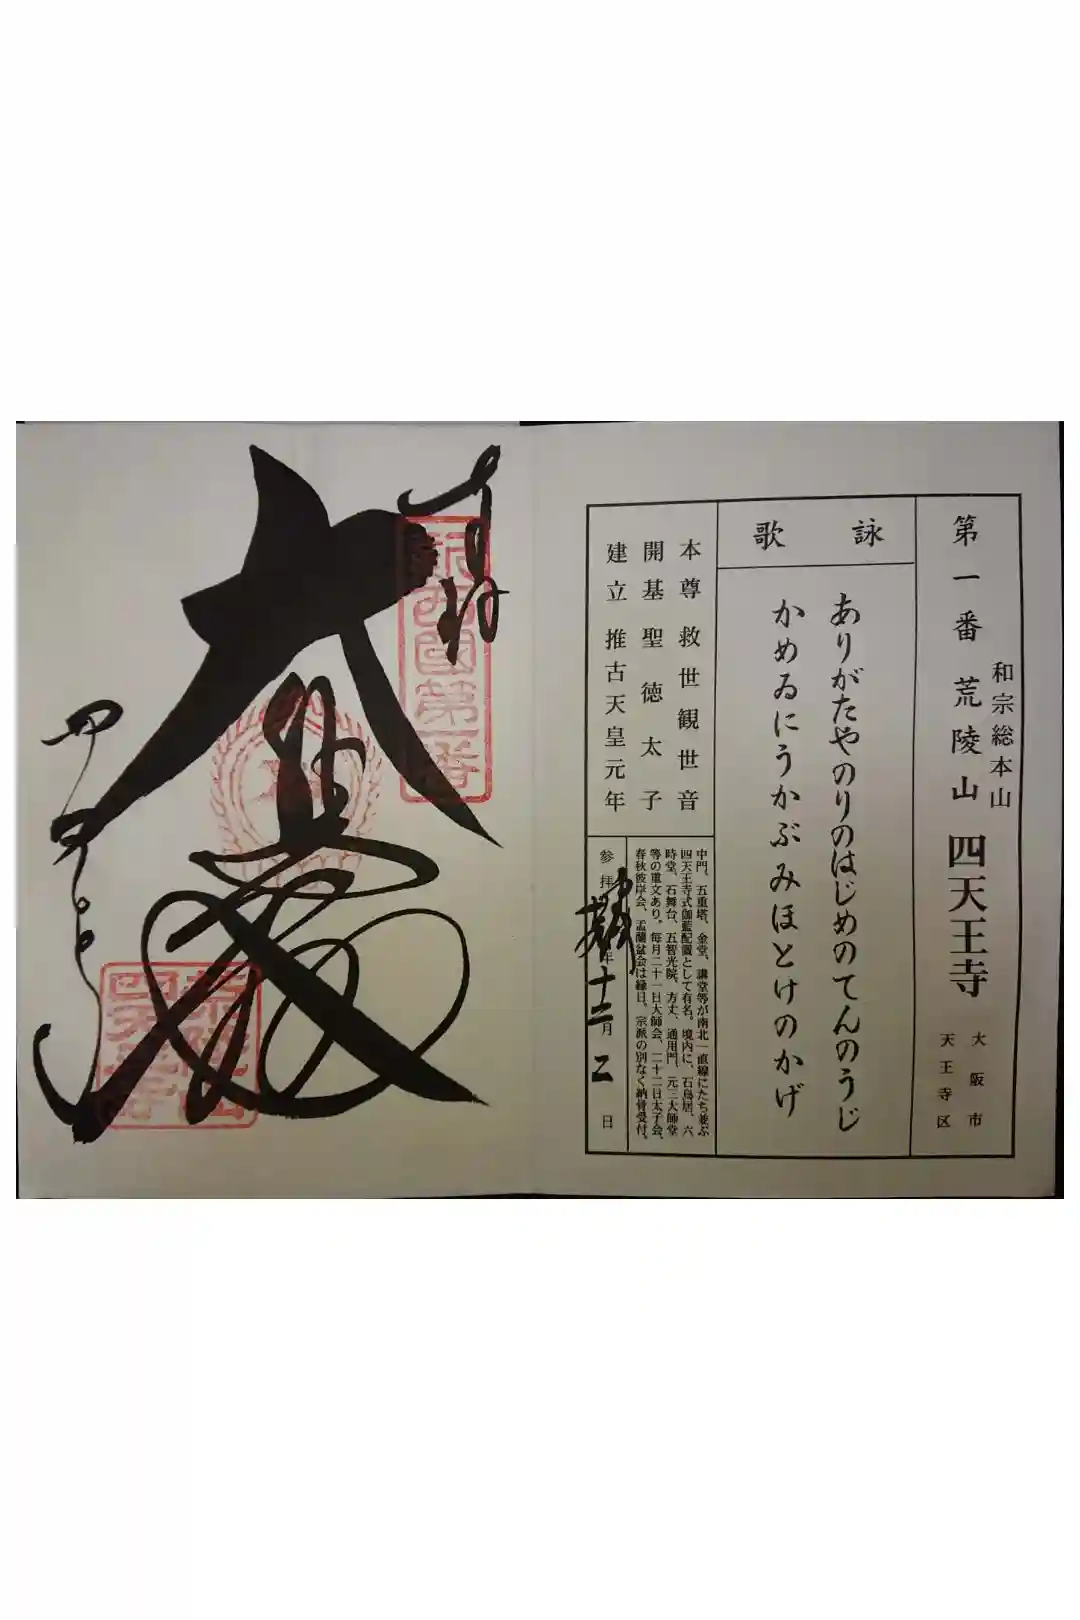 第一番 荒陵山 四天王寺
和宗総本山
大阪市
天王寺区
詠歌
ありがたやのりのはじめのてんのうじ
かめゐにうかぶみほとけのかげ
本尊 救世観世音
開基 聖徳太子
建立 推古天皇元年
中門、五重塔、金堂、講堂等が南北一直線にたち並ぶ
四天王寺式伽藍配置として有名。境内に、石鳥居、六
時堂、石舞台、五智光院、方丈、通用門、元三大師堂
等の重文あり。毎月二十一日大師会、二十二日太子会、
春秋彼岸会、盂蘭盆会は縁日。宗派の別なく納骨受付。
参拝 年 十二月 二日
奉拝
新西国第一番
大悲殿
四天王寺
荒陵山
四天王寺